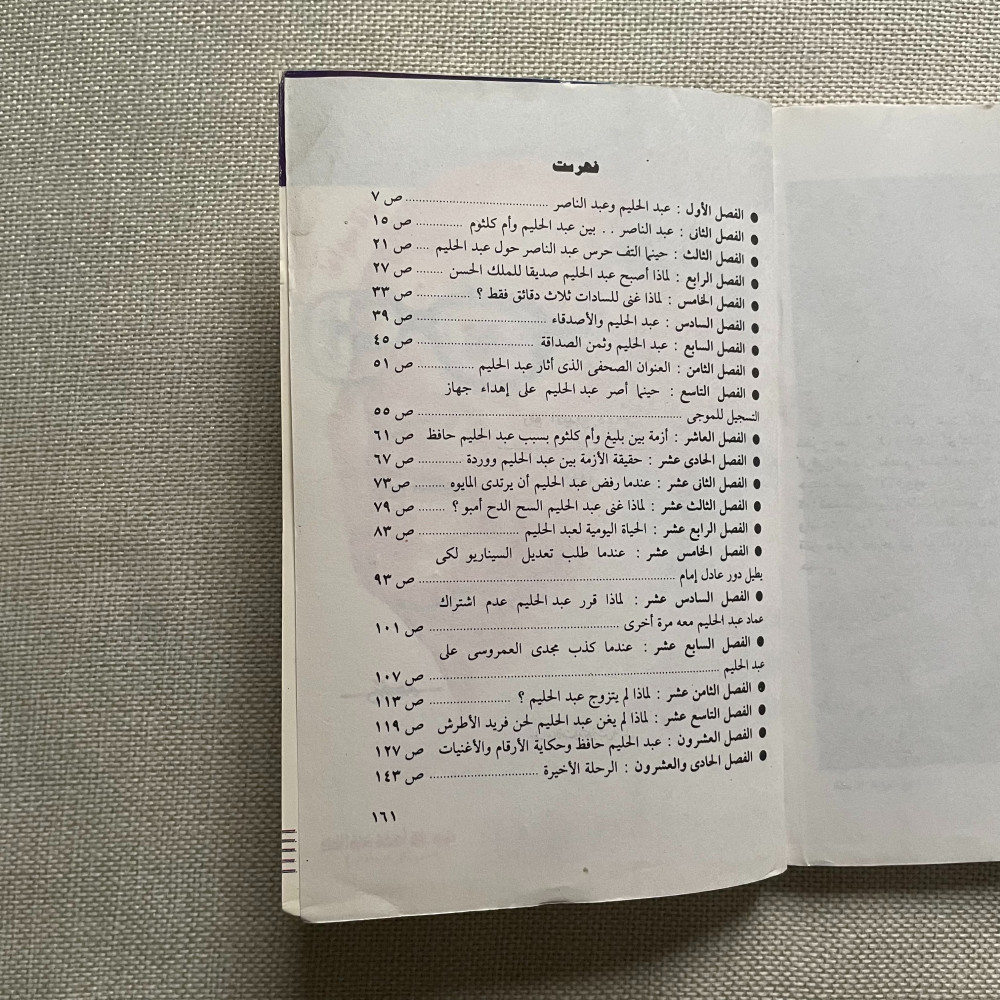 فهرست
● الفصل الأول : عبد الحليم وعبد الناصر ........ ص ٧
● الفصل الثانى : عبد الناصر . . بين عبد الحليم وأم كلثوم ........ ص ١٥
● الفصل الثالث : حينما التف حرس عبد الناصر حول عبد الحليم .... ص ٢١
● الفصل الرابع : لماذا أصبح عبد الحليم صديقا للملك الحسن ........ ص ٢٧
● الفصل الخامس : لماذا غنى للسادات ثلاث دقائق فقط ؟ ........ ص ٣٣
● الفصل السادس : عبد الحليم والأصدقاء ........ ص ٣٩
● الفصل السابع : عبد الحليم وثمن الصداقة ........ ص ٤٥
● الفصل الثامن : العنوان الصحفى الذى أثار عبد الحليم ........ ص ٥١
● الفصل التاسع : حينما أصر عبد الحليم على إهداء جهاز
التسجيل للموجى ........ ص ٥٥
● الفصل العاشر : أزمة بين بليغ وأم كلثوم بسبب عبد الحليم حافظ ص ٦١
● الفصل الحادى عشر : حقيقة الأزمة بين عبد الحليم ووردة ........ ص ٦٧
● الفصل الثانى عشر : عندما رفض عبد الحليم أن يرتدى المايوه ........ ص ٧٣
● الفصل الثالث عشر : لماذا غنى عبد الحليم السح الدح أمبو ؟ ........ ص ٧٩
● الفصل الرابع عشر : الحياة اليومية لعبد الحليم ........ ص ٨٣
● الفصل الخامس عشر : عندما طلب تعديل السيناريو لكى
يطيل دور عادل إمام ........ ص ٩٣
● الفصل السادس عشر : لماذا قرر عبد الحليم عدم اشتراك
عماد عبد الحليم معه مرة أخرى ........ ص ١٠١
● الفصل السابع عشر : عندما كذب مجدى العمروسى على
عبد الحليم ........ ص ١٠٧
● الفصل الثامن عشر : لماذا لم يتزوج عبد الحليم ؟ ........ ص ١١٣
● الفصل التاسع عشر : لماذا لم يغن عبد الحليم لحن فريد الأطرش ص ١١٩
● الفصل العشرون : عبد الحليم حافظ وحكاية الأرقام والأغنيات ص ١٢٧
● الفصل الحادى والعشرون : الرحلة الأخيرة ........ ص ١٤٣
١٦١